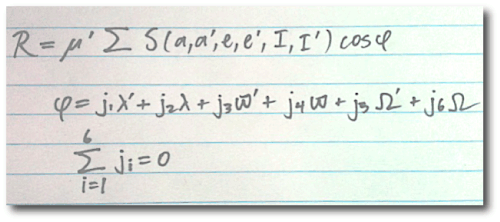 R = μ' Σ S(a,a',e,e',I,I') cos φ
φ = j₁λ' + j₂λ + j₃ϖ' + j₄ϖ + j₅Ω' + j₆Ω
6
Σ jᵢ = 0
i=1